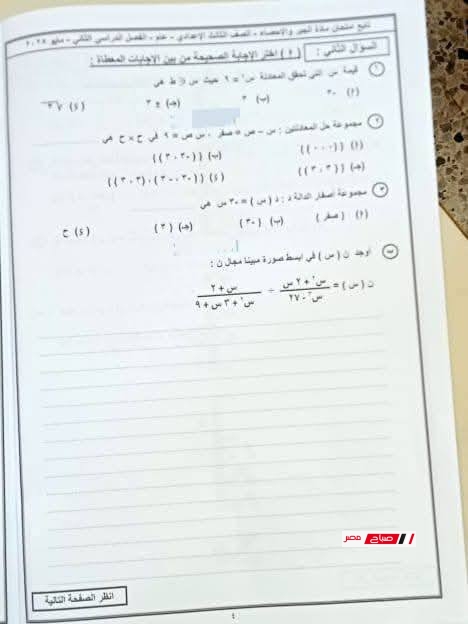 تابع امتحان مادة الجبر والإحصاء - الصف الثالث الإعدادي - عام - الفصل الدراسي الثاني - مايو ٢٠٢٥
السؤال الثاني : ( ١ ) اختر الإجابة الصحيحة من بين الإجابات المعطاة :
١ قيمة س التي تحقق المعادلة س٢ = ٩ حيث س ∉ ط هي
(١) -٣ (ب) ٣ (جـ) ± ٣
٢ مجموعة حل المعادلتين : س - ص = صفر ، س ص = ٩ في ح × ح هي
(١) {(٠،٠)} (ب) {(-٣،-٣)}
(جـ) {(٣،٣)} (د) {(-٣،-٣)،(٣،٣)}
٣ مجموعة أصفار الدالة د : د ( س ) = -٣ س هي
(١) { صفر } (ب) {-٣} (جـ) {٣} (د) ح
ب أوجد ن ( س ) في أبسط صورة مبينا مجال ن :
ن ( س ) = س٢ + ٢ س / س٣ - ٢٧ ÷ س + ٢ / س٢ + ٣ س + ٩
صباح مصر
انظر الصفحة التالية
٤